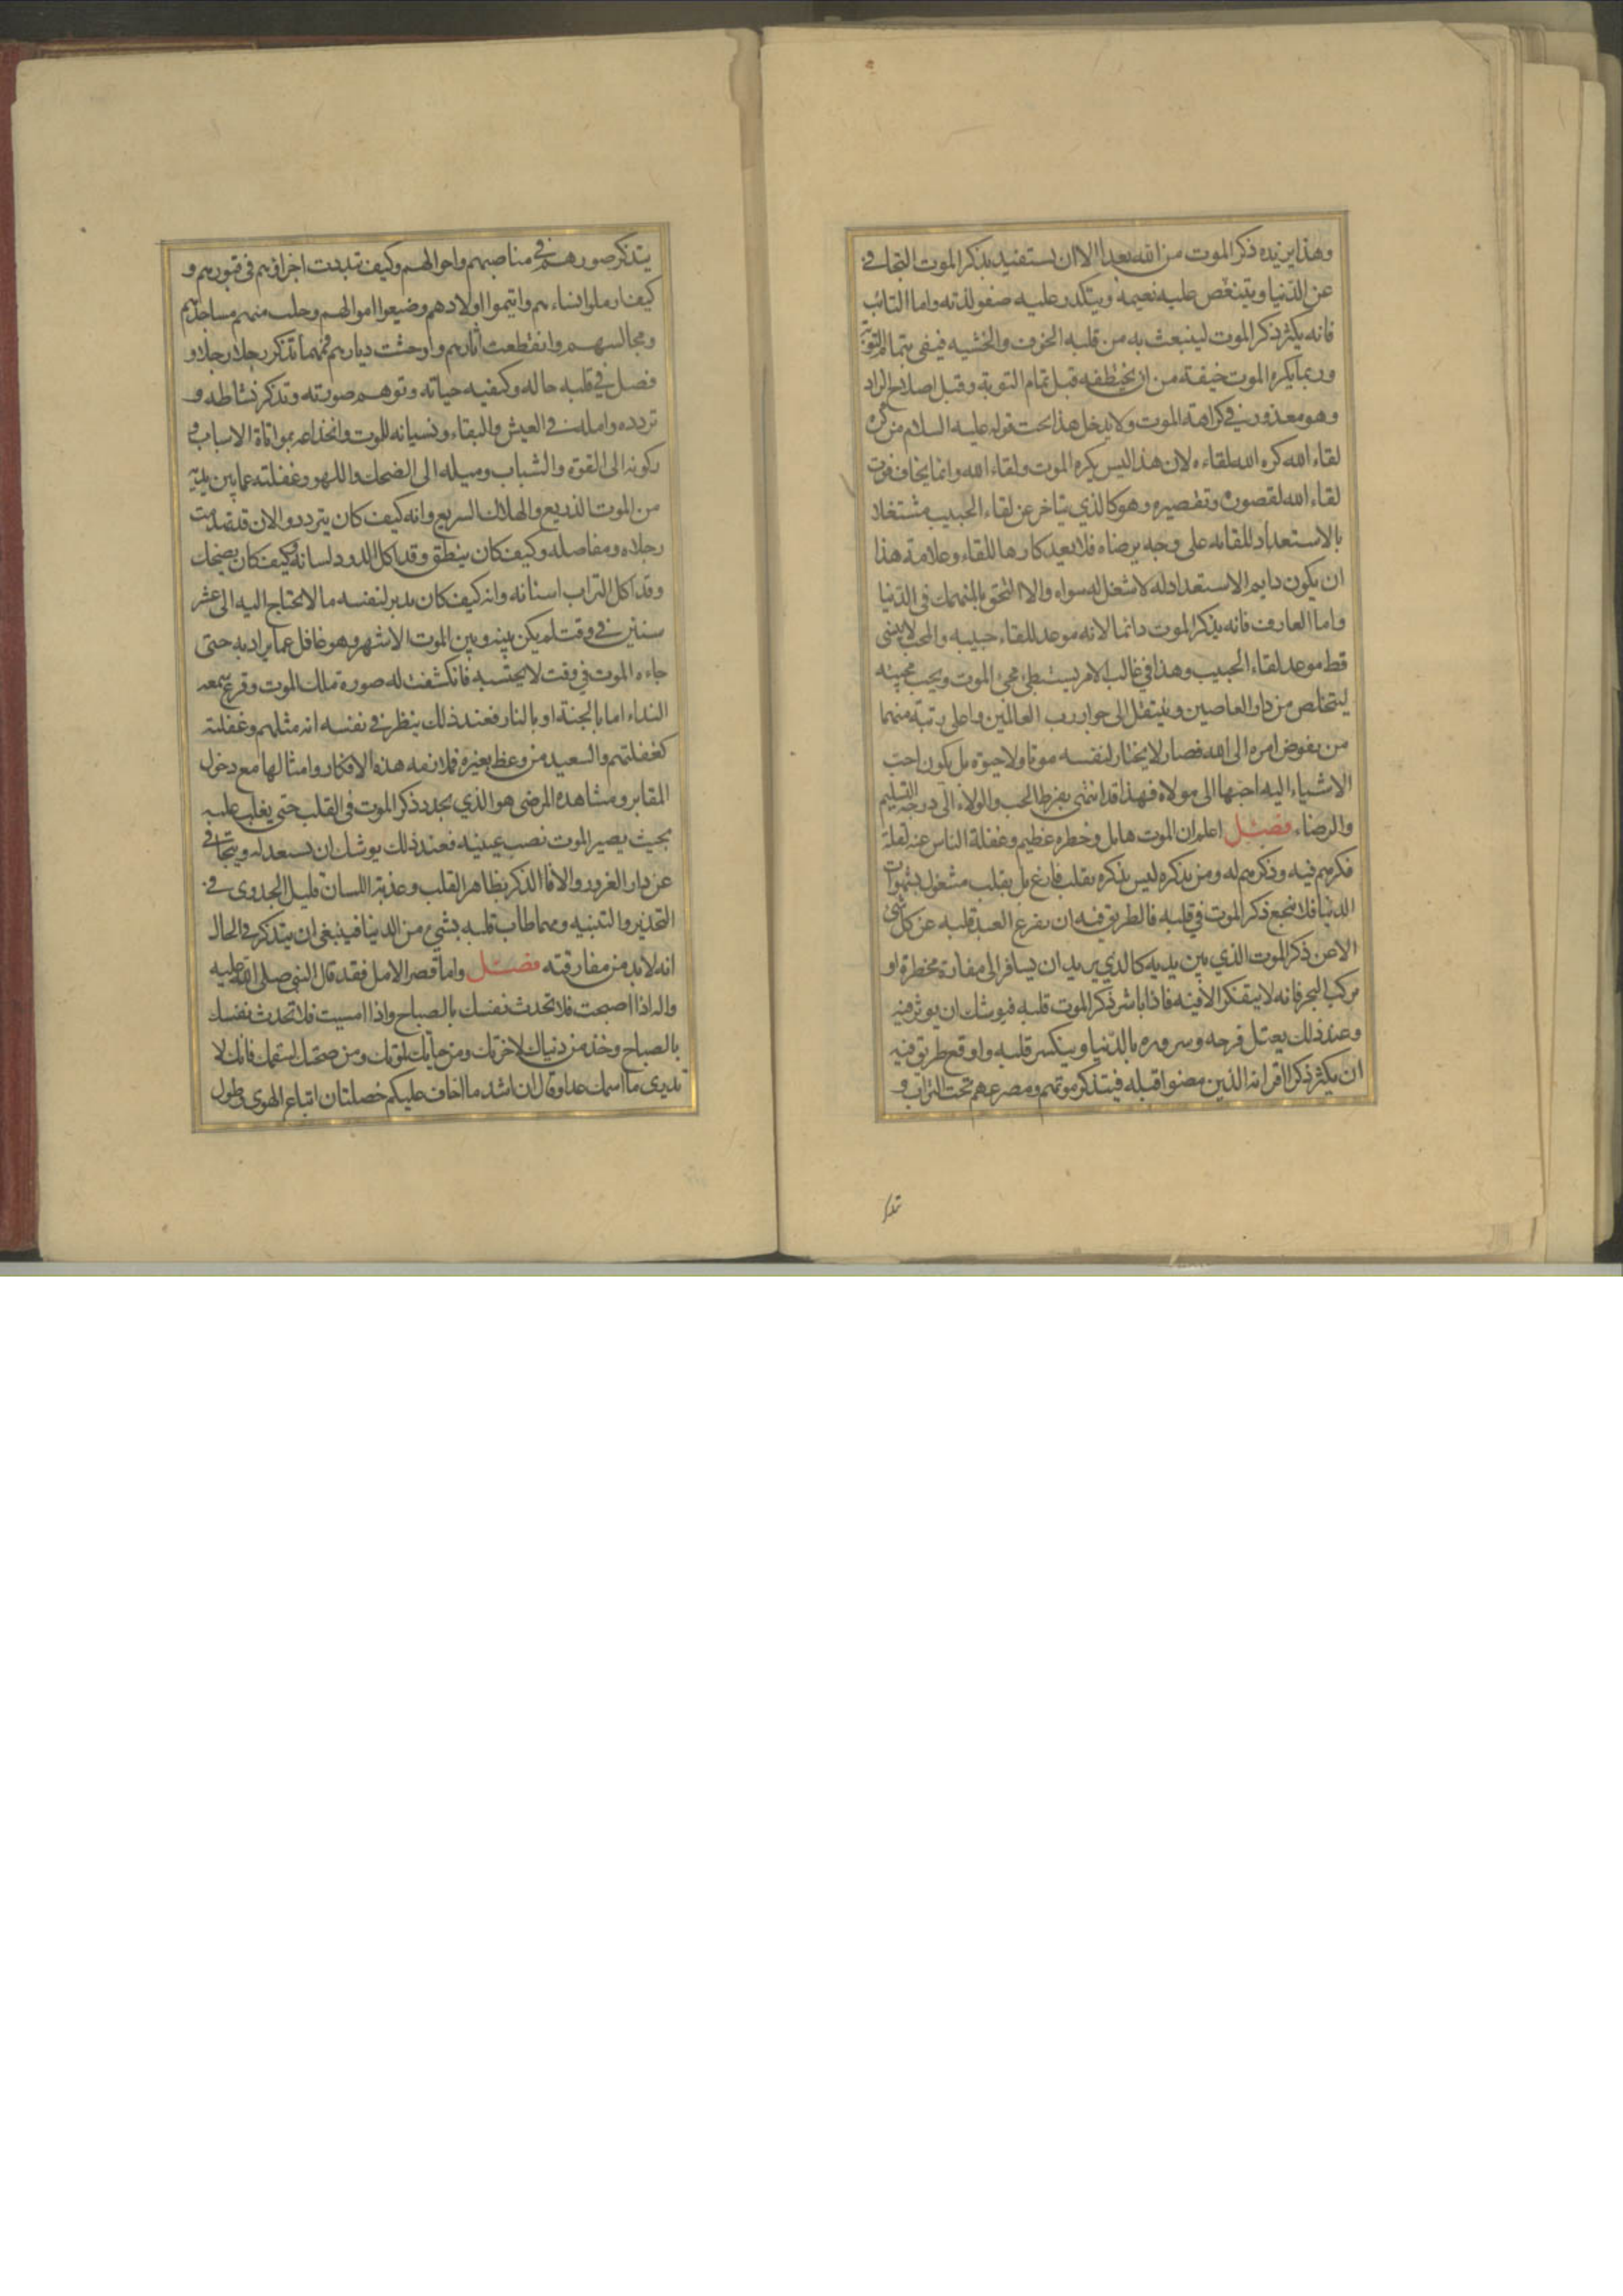 وهذا يزيده ذكر الموت من الله بعدا الا ان يستفيد بذكر الموت التجافي
عن الدنيا ويتنغص عليه نعيمه ويتكدر عليه صفو لذته واما التائب
فانه يكثر ذكر الموت لينبعث به من قلبه الخوف والخشيه فيفي بتمام التوبة
وربما يكره الموت خيفة من ان يختطفه قبل تمام التوبة وقبل اصلاح الزاد
وهو معذور في كراهة الموت ولا يدخل هذا تحت قوله عليه السلام من كره
لقاء الله كره الله لقاءه لان هذا ليس يكره الموت ولقاء الله وانما يخاف فوت
لقاء الله لقصوره وتقصيره وهو كالذي يتاخر عن لقاء الحبيب مشتغلا
بالاستعداد للقائه على وجه يرضاه فلا يعد كارها للقاء وعلامة هذا
ان يكون دايم الاستعداد له لا شغل له سواه والا التحق بالمنهمك في الدنيا
واما العارف فانه يذكر الموت دائما لانه موعد للقاء حبيبه والمحب لا ينسى
قط موعد لقاء الحبيب وهذا في غالب الامر يستبطئ مجئ الموت ويحب مجيئه
ليتخلص من دار العاصين وينتقل الى جوار رب العالمين واعلى رتبة منهما
من يفوض امره الى الله فصار لا يختار لنفسه موتا ولا حيوة بل يكون احب
الاشياء اليه احبها الى مولاه فهذا قد انتهى بفرط الحب والولاء الى درجة التسليم
والرضاء فصل اعلم ان الموت هايل وخطره عظيم وغفلة الناس عنه لقلة
فكرهم فيه وذكرهم له ومن يذكره ليس يذكره بقلب فارغ بل بقلب مشغول بشهوات
الدنيا فلا ينجع ذكر الموت في قلبه فالطريق فيه ان يفرغ العبد قلبه عن كل شئ
الا عن ذكر الموت الذي بين يديه كالذي يريد ان يسافر الى مفازة مخطرة او
مركب البحر فانه لا يتفكر الا فيه فاذا باشر ذكر الموت قلبه فيوشك ان يوثر فيه
وعند ذلك يقل فرحه وسروره بالدنيا وينكسر قلبه واوقع طريق فيه
ان يكثر ذكر اقرانه الذين مضوا قبله فيتذكر موتهم ومصرعهم تحت التراب و
يتذكر صورهم في مناصبهم واحوالهم وكيف تبددت اجزاؤهم في قبورهم و
كيف ارملوا نساءهم وايتموا اولادهم وضيعوا اموالهم وخلت منهم مساجدهم
ومجالسهم وانقطعت اثارهم واوحشت ديارهم فمهما تذكر رجلا رجلا و
فصل في قلبه حاله وكيفيه حياته وتوهم صورته وتذكر نشاطه و
تردده وامله في العيش والبقاء ونسيانه للموت وانخداعه بمواتاة الاسباب و
ركونه الى القوة والشباب وميله الى الضحك واللهو وغفلته عما بين يديه
من الموت الذريع والهلاك السريع وانه كيف كان يتردد والان قد تهدمت
رجلاه ومفاصله وكيف كان ينطق وقد اكل الدود لسانه وكيف كان يضحك
وقد اكل التراب اسنانه وانه كيف كان يدبر لنفسه ما لا يحتاج اليه الى عشر
سنين في وقت لم يكن بينه وبين الموت الا شهر وهو غافل عما يراد به حتى
جاءه الموت في وقت لا يحتسبه فانكشفت له صورة ملك الموت وقرع سمعه
النداء اما بالجنة او بالنار فعند ذلك ينظر في نفسه انه مثلهم وغفلته
كغفلتهم والسعيد من وعظ بغيره فملازمه هذه الافكار وامثالها مع دخول
المقابر ومشاهدة المرضى هو الذي يجدد ذكر الموت في القلب حتى يغلب عليه
بحيث يصير الموت نصب عينيه فعند ذلك يوشك ان يستعد له ويتجافي
عن دار الغرور والا فالذكر بظاهر القلب وعذبة اللسان قليل الجدوى في
التحذير والتنبيه ومهما طاب قلبه بشئ من الدنيا فينبغي ان يتذكر في الحال
انه لابد من مفارقته فصل واما قصر الامل فقد قال النبي صلى الله عليه
واله اذا اصبحت فلا تحدث نفسك بالصباح واذا امسيت فلا تحدث نفسك
بالصباح وخذ من دنياك لاخرتك ومن حياتك لموتك ومن صحتك لسقمك فانك لا
تدري ما اسمك غدا وقال ان اشد ما اخاف عليكم خصلتان اتباع الهوى وطول